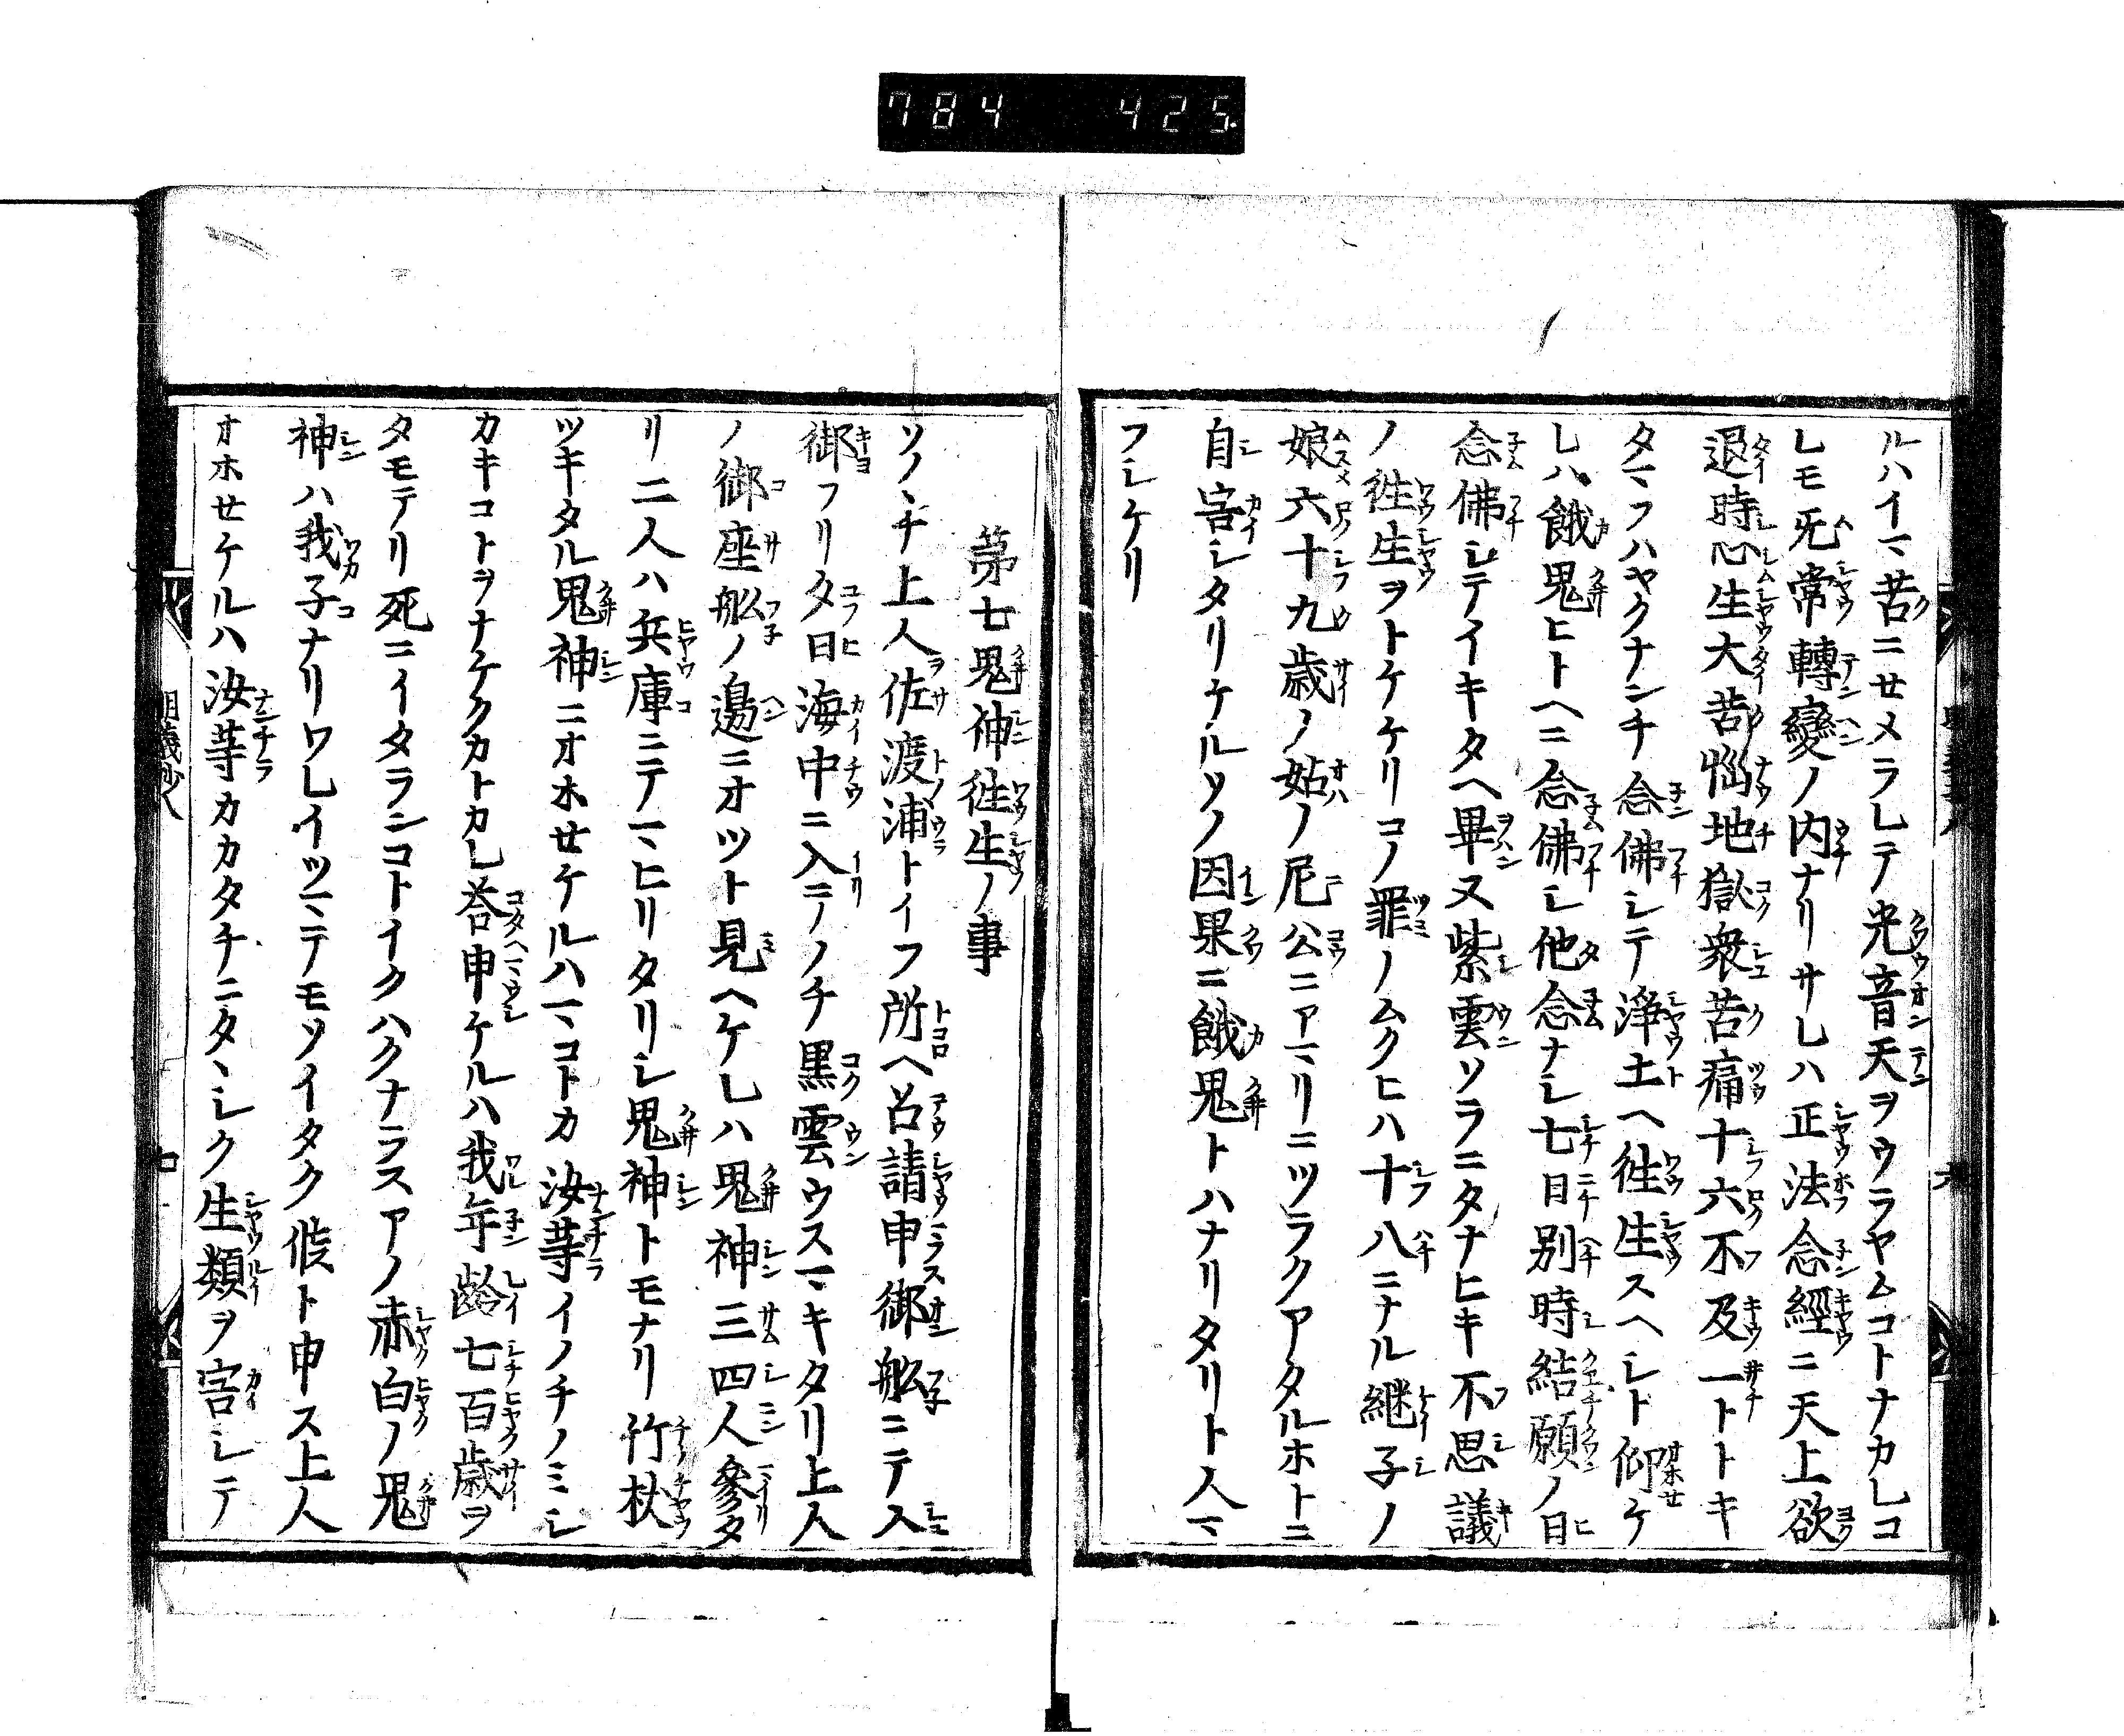 784 425
ルハイマ苦ニセメラレテ光音天ヲウラヤムコトナカレコ
レモ旡常轉變ノ内ナリサレハ正法念經ニ天上欲
退時心生大苦惱地獄衆苦痛十六不及一トトキ
タマフハヤクナンチ念佛シテ淨土ヘ徃生スヘシト仰ケ
レハ餓鬼ヒトヘニ念佛シ他念ナシ七日別時結願ノ日
念佛シテイキタヘ畢又紫雲ソラニタナヒキ不思議
ノ徃生ヲトケケリコノ罪ノムクヒハ十八ニナル継子ノ
娘六十九歳ノ姑ノ尼公ニアマリニツラクアタルホトニ
自害シタリケルソノ因果ニ餓鬼トハナリタリト人マ
フシケリ
苐七鬼神徃生ノ事
ソノヽチ上人佐渡浦トイフ所ヘ召請申御舩ニテ入
御フリタ日海中ニ入ニノノチ黒雲ウスマキタリ上人
ノ御座舩ノ邊ニオツト見ヘケレハ鬼神三四人參タ
リ二人ハ兵庫ニテマヒリタリシ鬼神トモナリ竹杖
ツキタル鬼神ニオホセケルハマコトカ汝等イノチノミシ
カキコトヲナケクカトカレ荅申ケルハ我年齡七百歳ヲ
タモテリ死ニイタランコトイクハクナラスアノ赤白ノ鬼
神ハ我子ナリワレイツマテモソイタク候ト申ス上人
オホセケルハ汝等カカタチニタヽシク生類ヲ害シテ